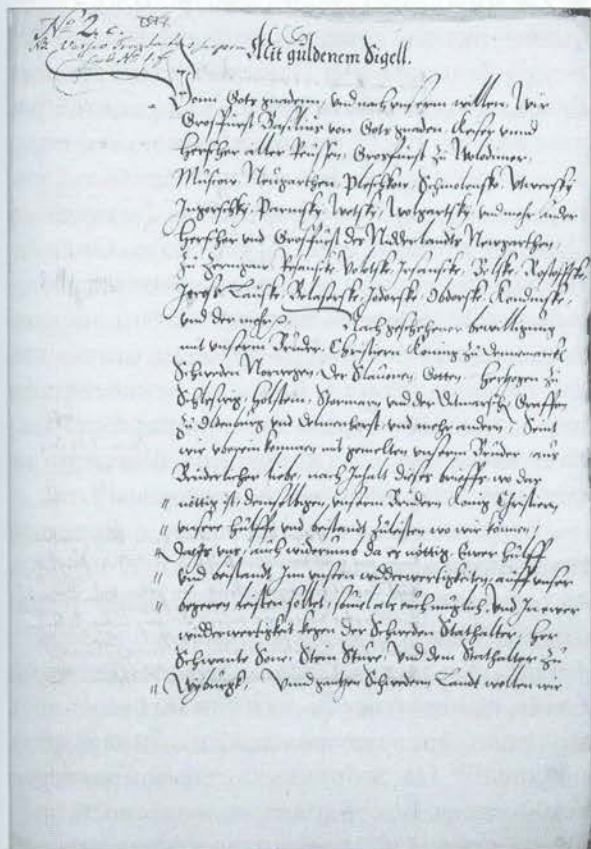 No 2. c.
Mit guldenem Sigell.
Vonn Gots gnadenn, und nach unserm willen, Wir
Grosfurst Basilius von Gots gnaden, Keser unnd
Herscher aller Reussen, Grosfurst zu Wolodimer,
Muscow Neugarthen, Pleschkow, Schmolenske, Utwersky
Jugorschky, Permsky, Wetsky, Wolgartsky, und mehr ander
Herscher und Grosfurst des Nidderlandts Newgarthen,
zu Resanske Wolotsk, Belske, Rostoffske,
Belaserske, Udorske, Obdorske, Kondinske,
und des mehr. Nach geschehener bewilligung
mit unserm Bruder, Christiern Koning zu Dennemarck
Schweden Norwegen, Der Slauenen, Gotten, Hertzogen zu
Schleswig, Holstein, Stormarn und der Ditmarschen Graffen
zu Oldenburg und Delmenhorst, und mehr andern, Seint
wir uberein kommen mit gemelten unserm Bruder, aus
Bruderlicher liebe, nach Inhalt dieses brieffs, wo das
nöttig ist, demselbigen, unserm Brudern König Christiern,
unsere hulffe und beistandt zuleisten wo wir können,
Da ihr uns, auch widerumb da es nöttig, Ewer hulff
und beistandt Inn unsern widderwertigkeiten, auff unser
begeren leisten soltet, souiel als euch muglich, Und In ewer
widderwertigkeit kegen der Schweden Stathalter, her
Schwante Sone, Stein Sture, Und dem Stathalter zu
Wyburgk, Unnd gantzen Schweden Landt wollen wir